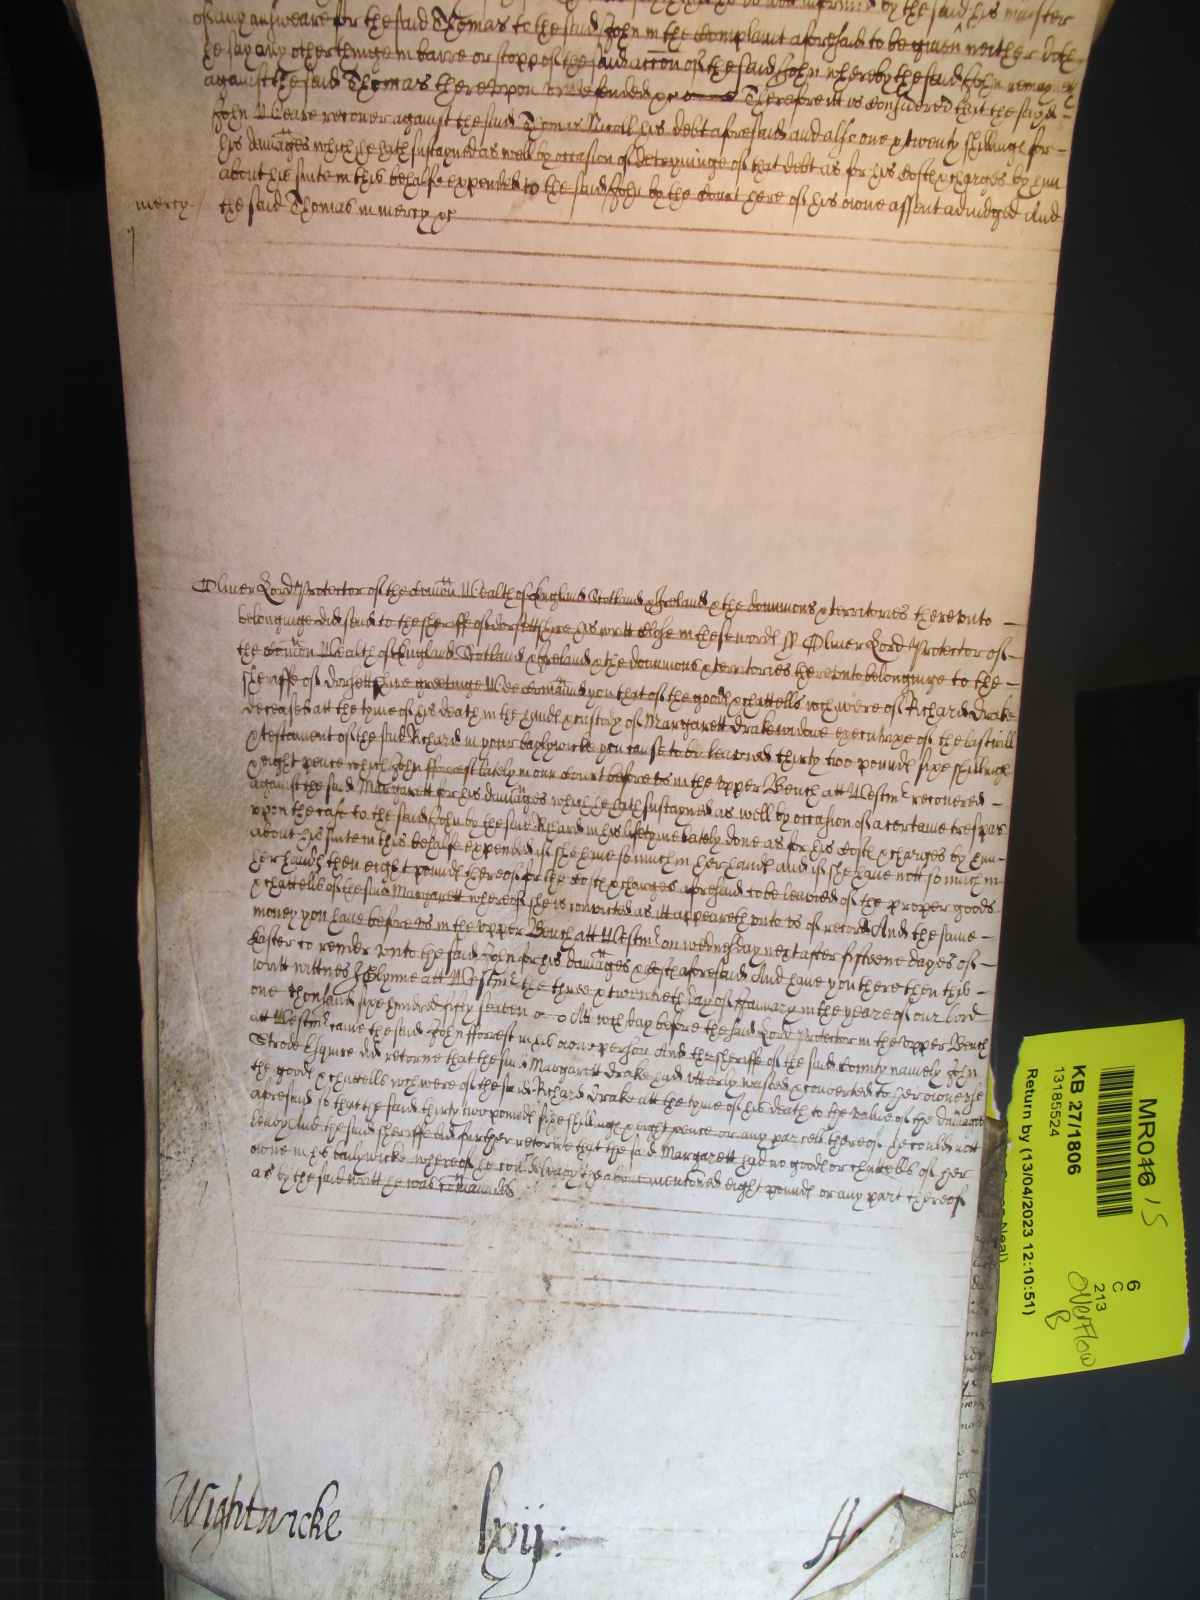 by the said his master
of any answeare for the said Thomas to the said John in the complaint aforesaid to be given neither doth
he say any other thinge in barre or stopp of the said accon of the said John whereby the said John remayneth
against the said Thomas thereupon undefended &c Therefore itt is considered that the said
John Weare recover against the said Thomas Nicoll his debt aforesaid and alsoe one & twenty shillings for
his damages which he hath sustayned as well by occasion of deteyninge of that debt as for his costs & charges by him
about his suite in this behalfe expended to the said John by the Court here of his owne assent adiudged And
mercy. the said Thomas in mercy &c
Oliver Lord Protector of the Comon Wealth of England Scotland & Ireland & the dominions & territories thereunto
belonginge did send to the sheriffe of dorsettshire his writt close in these words ss Oliver Lord Protector of
the Comon Wealth of England Scotland & Ireland & the dominions & territories thereunto belonginge to the
sheriffe of dorsettshire greetinge Wee comaund you that of the goods & chattells wch were of Richard Drake
deceased att the tyme of his death in the hands & custody of Margarett Drake widow executrixe of the last will
& testament of the said Richard in your baylywicke you cause to be leavied thirty two pounds sixe shillings
& eight pence which John fforrest lately in our Court before us in the upper Bench att Westmr recovered
against the said Margarett for his damages which he hath sustayned as well by occasion of a certaine trespas
upon the case to the said John by the said Richard in his lifetyme lately done as for his costs & charges by him
about his suite in this behalfe expended if she have so much in her hands and if she have nott so much in
her hands then eight pounds thereof for the costs & charges aforesaid to be leavied of the proper goods
& chattells of the said Margarett whereof she is convicted as itt appeareth unto us of record And the same
money you have before us in the upper Bench att Westmr on wednesday next after fifteene dayes of
Easter to render unto the said John for his damages & costs aforesaid And have you there then this
writt wittnes J Glynne att Westmr the three & twentieth day of January in the year of our Lord
one thousand sixe hundred fifty seaven Att wch day before the said Lord Protector in the upper Bench
att Westmr came the said John fforrest in his owne person And the sheriffe of the said County namely John
Strode Esquire did retorne that the said Margarett Drake had utterly wasted & converted to her owne use
the goods & chattells wch were of the said Richard Drake att the tyme of his death to the value of the damages
aforesaid so that the said thirty two pounds sixe shillings & eight pence or any parcell thereof he could nott
leavy And the said sheriffe did further retorne that the said Margarett had no goods or chattells of her
owne in his bailywicke whereof he could leavy the above mentoned eight pounds or any part thereof
as by the said writt he was comaunded
Wightwicke lxij: H
MR046 15
KB 27/1806
13185524
Return by (13/04/2023 12:10:51)
6
C
213
Overflow
B